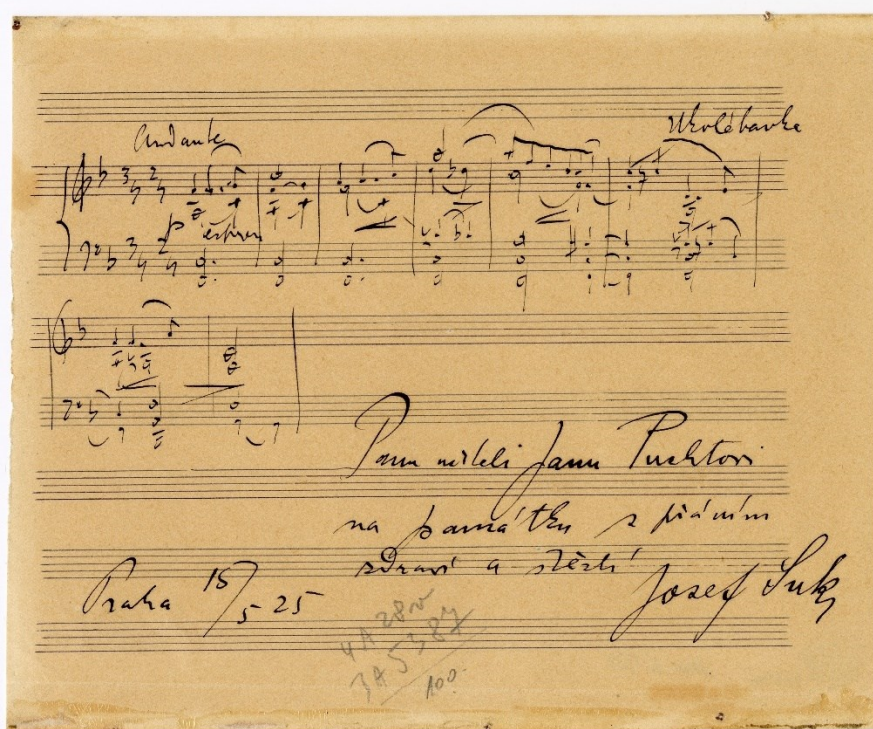 Andante
Ukolébavka
p espress
Panu učiteli Janu Puchtovi
na památku s přáním
zdraví a štěstí
Josef Suk
Praha 15/5 25
100.